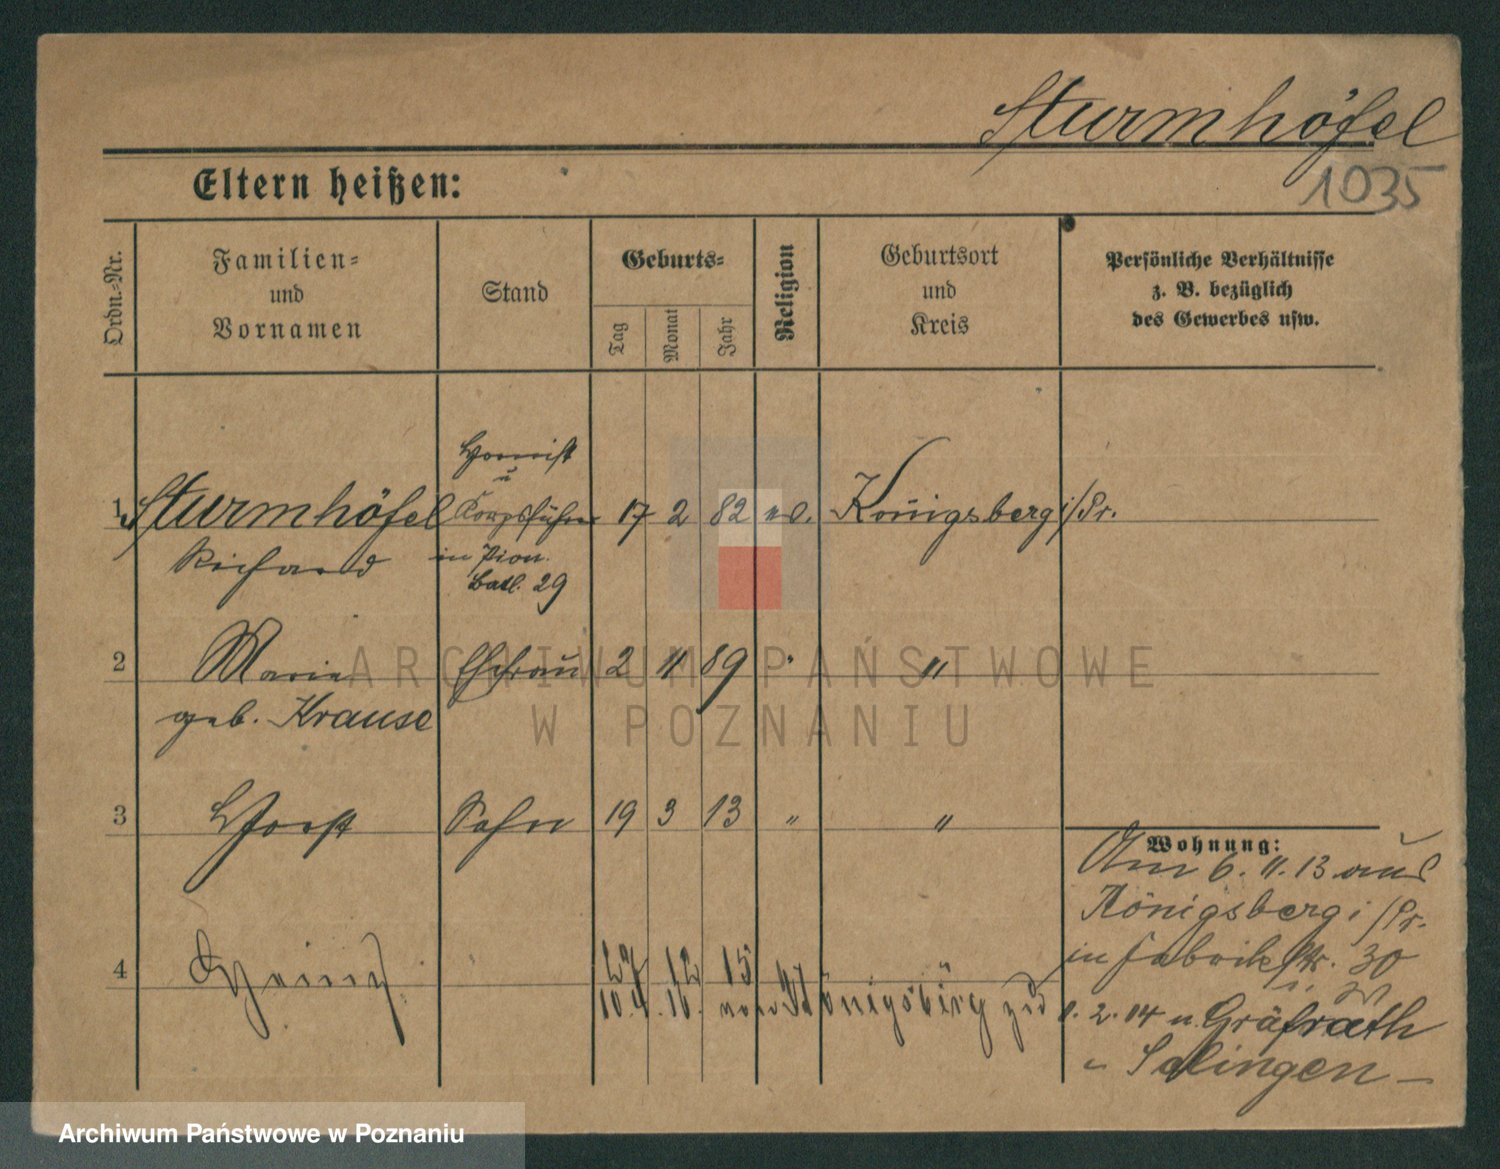 Sturmhöfel
1035
Eltern heißen:
Ordn.-Nr.
Familien-
und
Vornamen
Stand
Geburts-
Tag
Monat
Jahr
Religion
Geburtsort
und
Kreis
Persönliche Verhältnisse
z. B. bezüglich
des Gewerbes usw.
1 Sturmhöfel 17 2 82 Königsberg i/Pr.
Hornist
u
Korpsführer
in Pion.
Batl. 29
Richard
2 Marie Ehefrau 2 11 89 " "
geb. Krause
3 Horst Sohn 19 3 13 " "
Wohnung:
Am 6. 11. 13 aus
Königsberg i/Pr.
in Fabrikstr. 30
4 Heinz 12 15
10.4.16. von Königsberg
1. 2. 14 n. Gräfrath
Solingen
ARCHIWUM PAŃSTWOWE
W POZNANIU
Archiwum Państwowe w Poznaniu